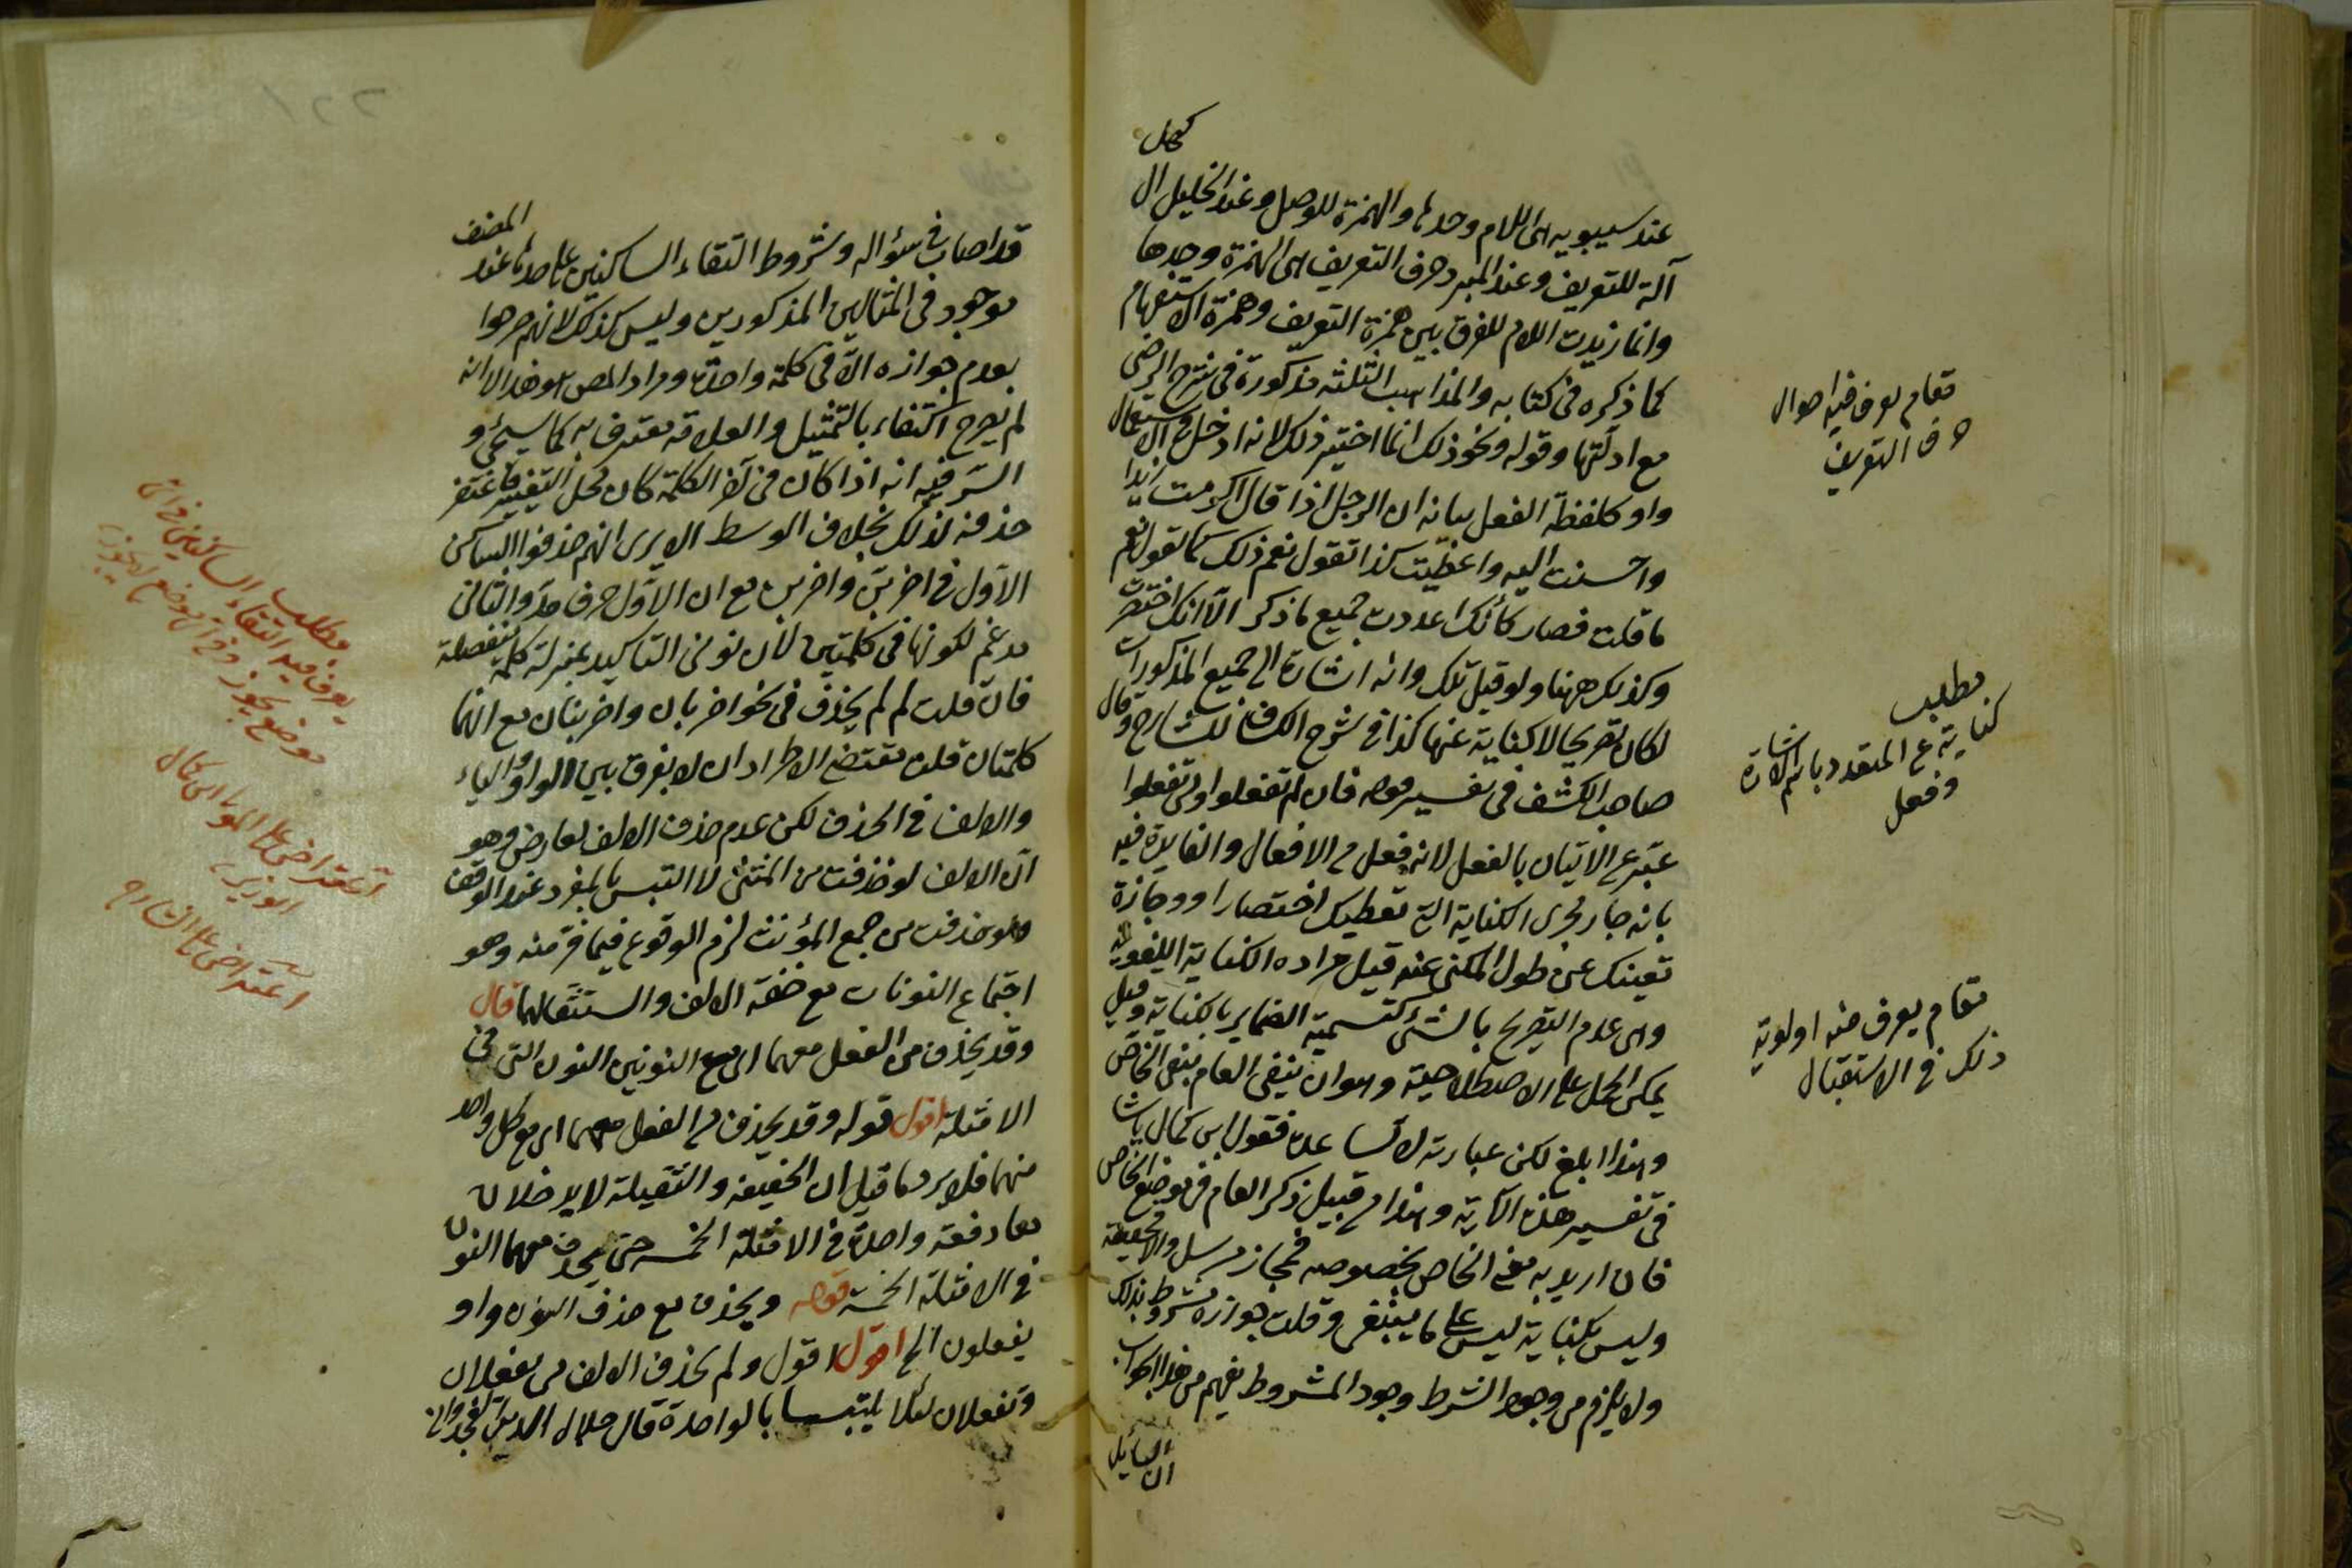 كهل
عند سيبويه هى اللام وحدها والهمزة للوصل وعند الخليل ال
آلة للتعريف وعند المبرد حرف التعريف هى الهمزة وحدها
وانما زيدت اللام للفرق بين همزة التعريف وهمزة الاستفهام
كما ذكره فى كتابه والمذاهب الثلثه مذكورة فى شرح الرضى
مع ادلتها وقوله ونحو ذلك انما اختير ذلك لانه ادخل فى الاستعمال
واو كلفظة الفعل بيانه ان الرجل اذا قال اكرمت زيدا
واحسنت اليه واعطيت كذا تقول نعم ذلك كما تقول نعم
ما قلت فصار كأنك اعددت جميع ما ذكر الا انك اختصرت
وكذلك ههنا ولو قيل تلك وانه اشارة الى جميع المذكورات
لكان تصريحا لا كناية عنها كذا فى شرح الكشاف للشارح وقال
صاحب الكشف فى تفسير قوله فان لم تفعلوا ولن تفعلوا
عبّر عن الاتيان بالفعل لانه فعل من الافعال والفايدة فيه
بانه جار مجرى الكناية التى تعطيك اختصارا ووجازة
تغنيك عن طول المكنى عنه قيل مراده الكناية اللغوية
وهى عدم التصريح بالشئ كتسمية الضماير بالكناية وقيل
يمكن الحمل على الاصطلاحية وهو ان ينفى العام بنفى الخاص
وهذا ابلغ لكن عبارته لا تساعده فقول ابن كمال پاشا
فى تفسير هذه الآية وهذا من قبيل ذكر العام فى موضع الخاص
فان اريد به معنى الخاص بخصوصه فمجاز مرسل والا فحقيقة
وليس بكناية ليس على ما ينبغى وقلت جوازه مشروط بذلك
ولا يلزم من وجود الشرط وجود المشروط يفهم من هذا الجواب
ان السايل
مقام يعرف فيه احوال
حرف التعريف
مطلب
كناية عن المتعدد باسم الاشارة
وفعل
مقام يعرف منه اولوية
ذلك فى الاستقبال
قد اصاب فى سؤاله وشروط التقاء الساكنين على حدها عند المصنف
موجود فى المثالين المذكورين وليس كذلك لانهم صرحوا
بعدم جوازه الا فى كلمة واحدة ومراد المص هو هذا الا انه
لم يصرح اكتفاء بالتمثيل والعلامة معترف به كما سيجئ و
السّر فيه انه اذا كان فى آخر الكلمة كان محل التغيير فاغتفر
حذفه لذلك بخلاف الوسط الا يرى انهم حذفوا الساكن
الاول فى اضربنّ واضربن مع ان الاول حرف مد والثانى
مدغم لكونها فى كلمتين لان نونى التاكيد بمنزلة كلمة منفصلة
فان قلت لم لم يحذف فى نحو اضربان واضربنان مع انهما
كلمتان قلت مقتضى الاطراد ان لا يفرق بين الواو والياء
والالف فى الحذف لكن عدم حذف الالف لعارض وهو
ان الالف لو حذفت من المثنى لا التبس بالمفرد عند الوقف
ولو حذفت من جمع المؤنث لزم الوقوع فيما فرّ منه وهو
اجتماع النونات مع خفة الالف واستثقالهما قال
وقد يحذف من الفعل معهما اى مع النونين النون التى فى
الامثلة اقول قوله وقد يحذف من الفعل معهما اى مع كل واحد
منهما فلا يرد ما قيل ان الخفيفة والثقيلة لا يدخلان
معا دفعة واحدة فى الامثلة الخمسة حتى يحذف معهما النون
فى الامثلة الخمسة قوله ويحذف مع حذف النون واو
يفعلون الخ اقول اقول ولم يحذف الالف من يفعلان
وتفعلان لئلا يلتبسا بالواحدة قال جلال الدين الغجدوانى
مطلب
يعرف فيه التقاء الساكنين فى اى
موضع يجوز وفى اى موضع لا يجوز
اعتراض على المولى ابن كمال
الوزير
اعتراض على الشارح